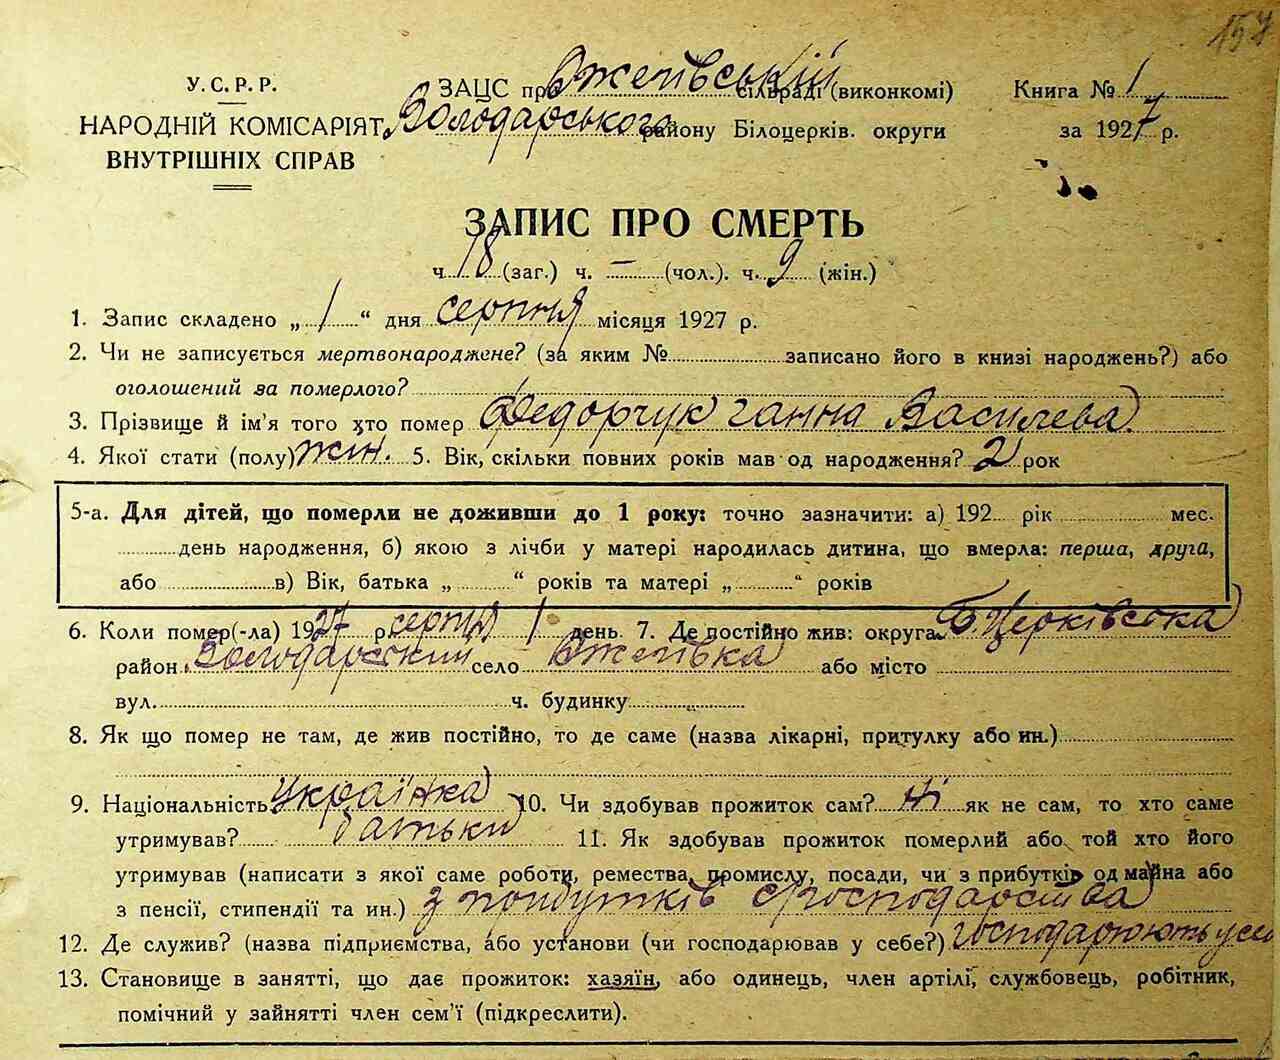 157
У.С.Р.Р.
НАРОДНІЙ КОМІСАРІЯТ
ВНУТРІШНІХ СПРАВ
ЗАЦС при Ожегівській сільраді (виконкомі)
Володарського району Білоцерків. округи
Книга № 1
за 1927 р.
ЗАПИС ПРО СМЕРТЬ
ч. 18 (заг.) ч. – (чол.). ч. 9 (жін.)
1. Запис складено „ 1 “ дня серпня місяця 1927 р.
2. Чи не записується мертвонароджене? (за яким № записано його в книзі народжень?) або
оголошений за померлого?
3. Прізвище й ім'я того хто помер Федорчук Ганна Василева
4. Якої стати (полу) жін. 5. Вік, скільки повних років мав од народження? 2 рок
5-а. Для дітей, що померли не доживши до 1 року: точно зазначити: а) 192 рік мес.
день народження, б) якою з лічби у матері народилась дитина, що вмерла: перша, друга,
або в) Вік, батька „ “ років та матері „ “ років
6. Коли помер(-ла) 1927 р. серпня 1 день 7. Де постійно жив: округа Б. Церківська
район Володарський село Ожегівка або місто
вул. ч. будинку
8. Як що помер не там, де жив постійно, то де саме (назва лікарні, притулку або ин.)
9. Національність українка 10. Чи здобував прожиток сам? ні як не сам, то хто саме
утримував? батьки 11. Як здобував прожиток померлий або той хто його
утримував (написати з якої саме роботи, ремества, промислу, посади, чи з прибутків од майна або
з пенсії, стипендії та ин.) з прибутків с/господарства
12. Де служив? (назва підприємства, або установи (чи господарював у себе?) господарюють у себе
13. Становище в занятті, що дає прожиток: хазяїн, або одинець, член артілі, службовець, робітник,
помічний у зайнятті член сем'ї (підкреслити).